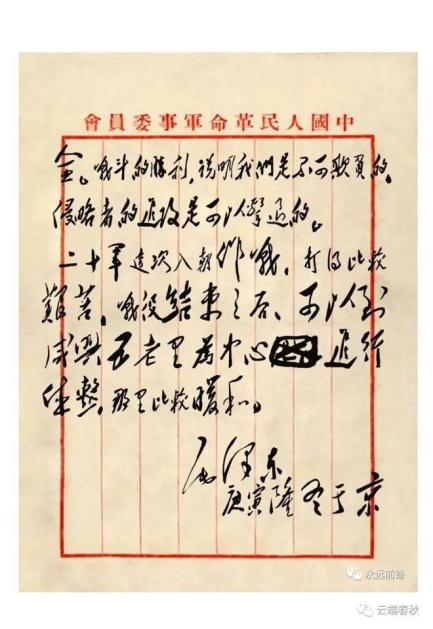 中國人民革命軍事委員會
全。戰斗的勝利,说明我們是不可欺負的,
侵略者的進攻是可以擊退的。
二十軍這次入朝作戰,打得比較
艱苦。戰役結束之后,可以到
咸興五老里為中心進行
休整,那里比較暖和。
毛澤东
庚寅隆冬于京
永远前锋
云端春秋